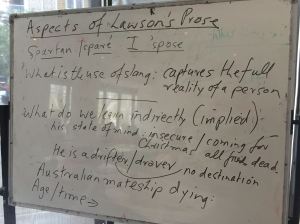 Aspects of Lawson's Prose
Spartan / spare I 'spose
What is the use of slang: captures the full
reality of a person
What do we learn indirectly (implied):
his state of mind: insecure / coming for
Christmas all friends dead
He is a drifter / drover no destination
Australian mateship dying:
Age / time →